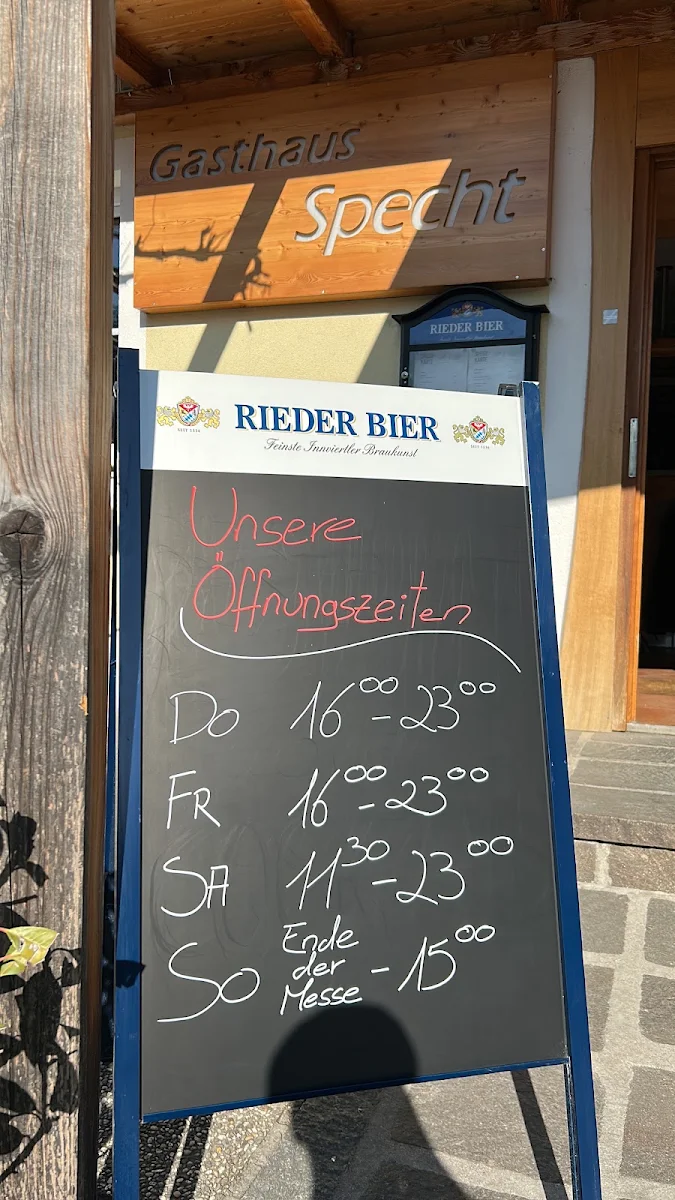 Gasthaus
Specht
RIEDER BIER
RIEDER BIER
Feinste Innviertler Braukunst
Unsere
Öffnungszeiten
Do 16⁰⁰ - 23⁰⁰
FR 16⁰⁰ - 23⁰⁰
SA 11³⁰ - 23⁰⁰
So Ende der Messe - 15⁰⁰